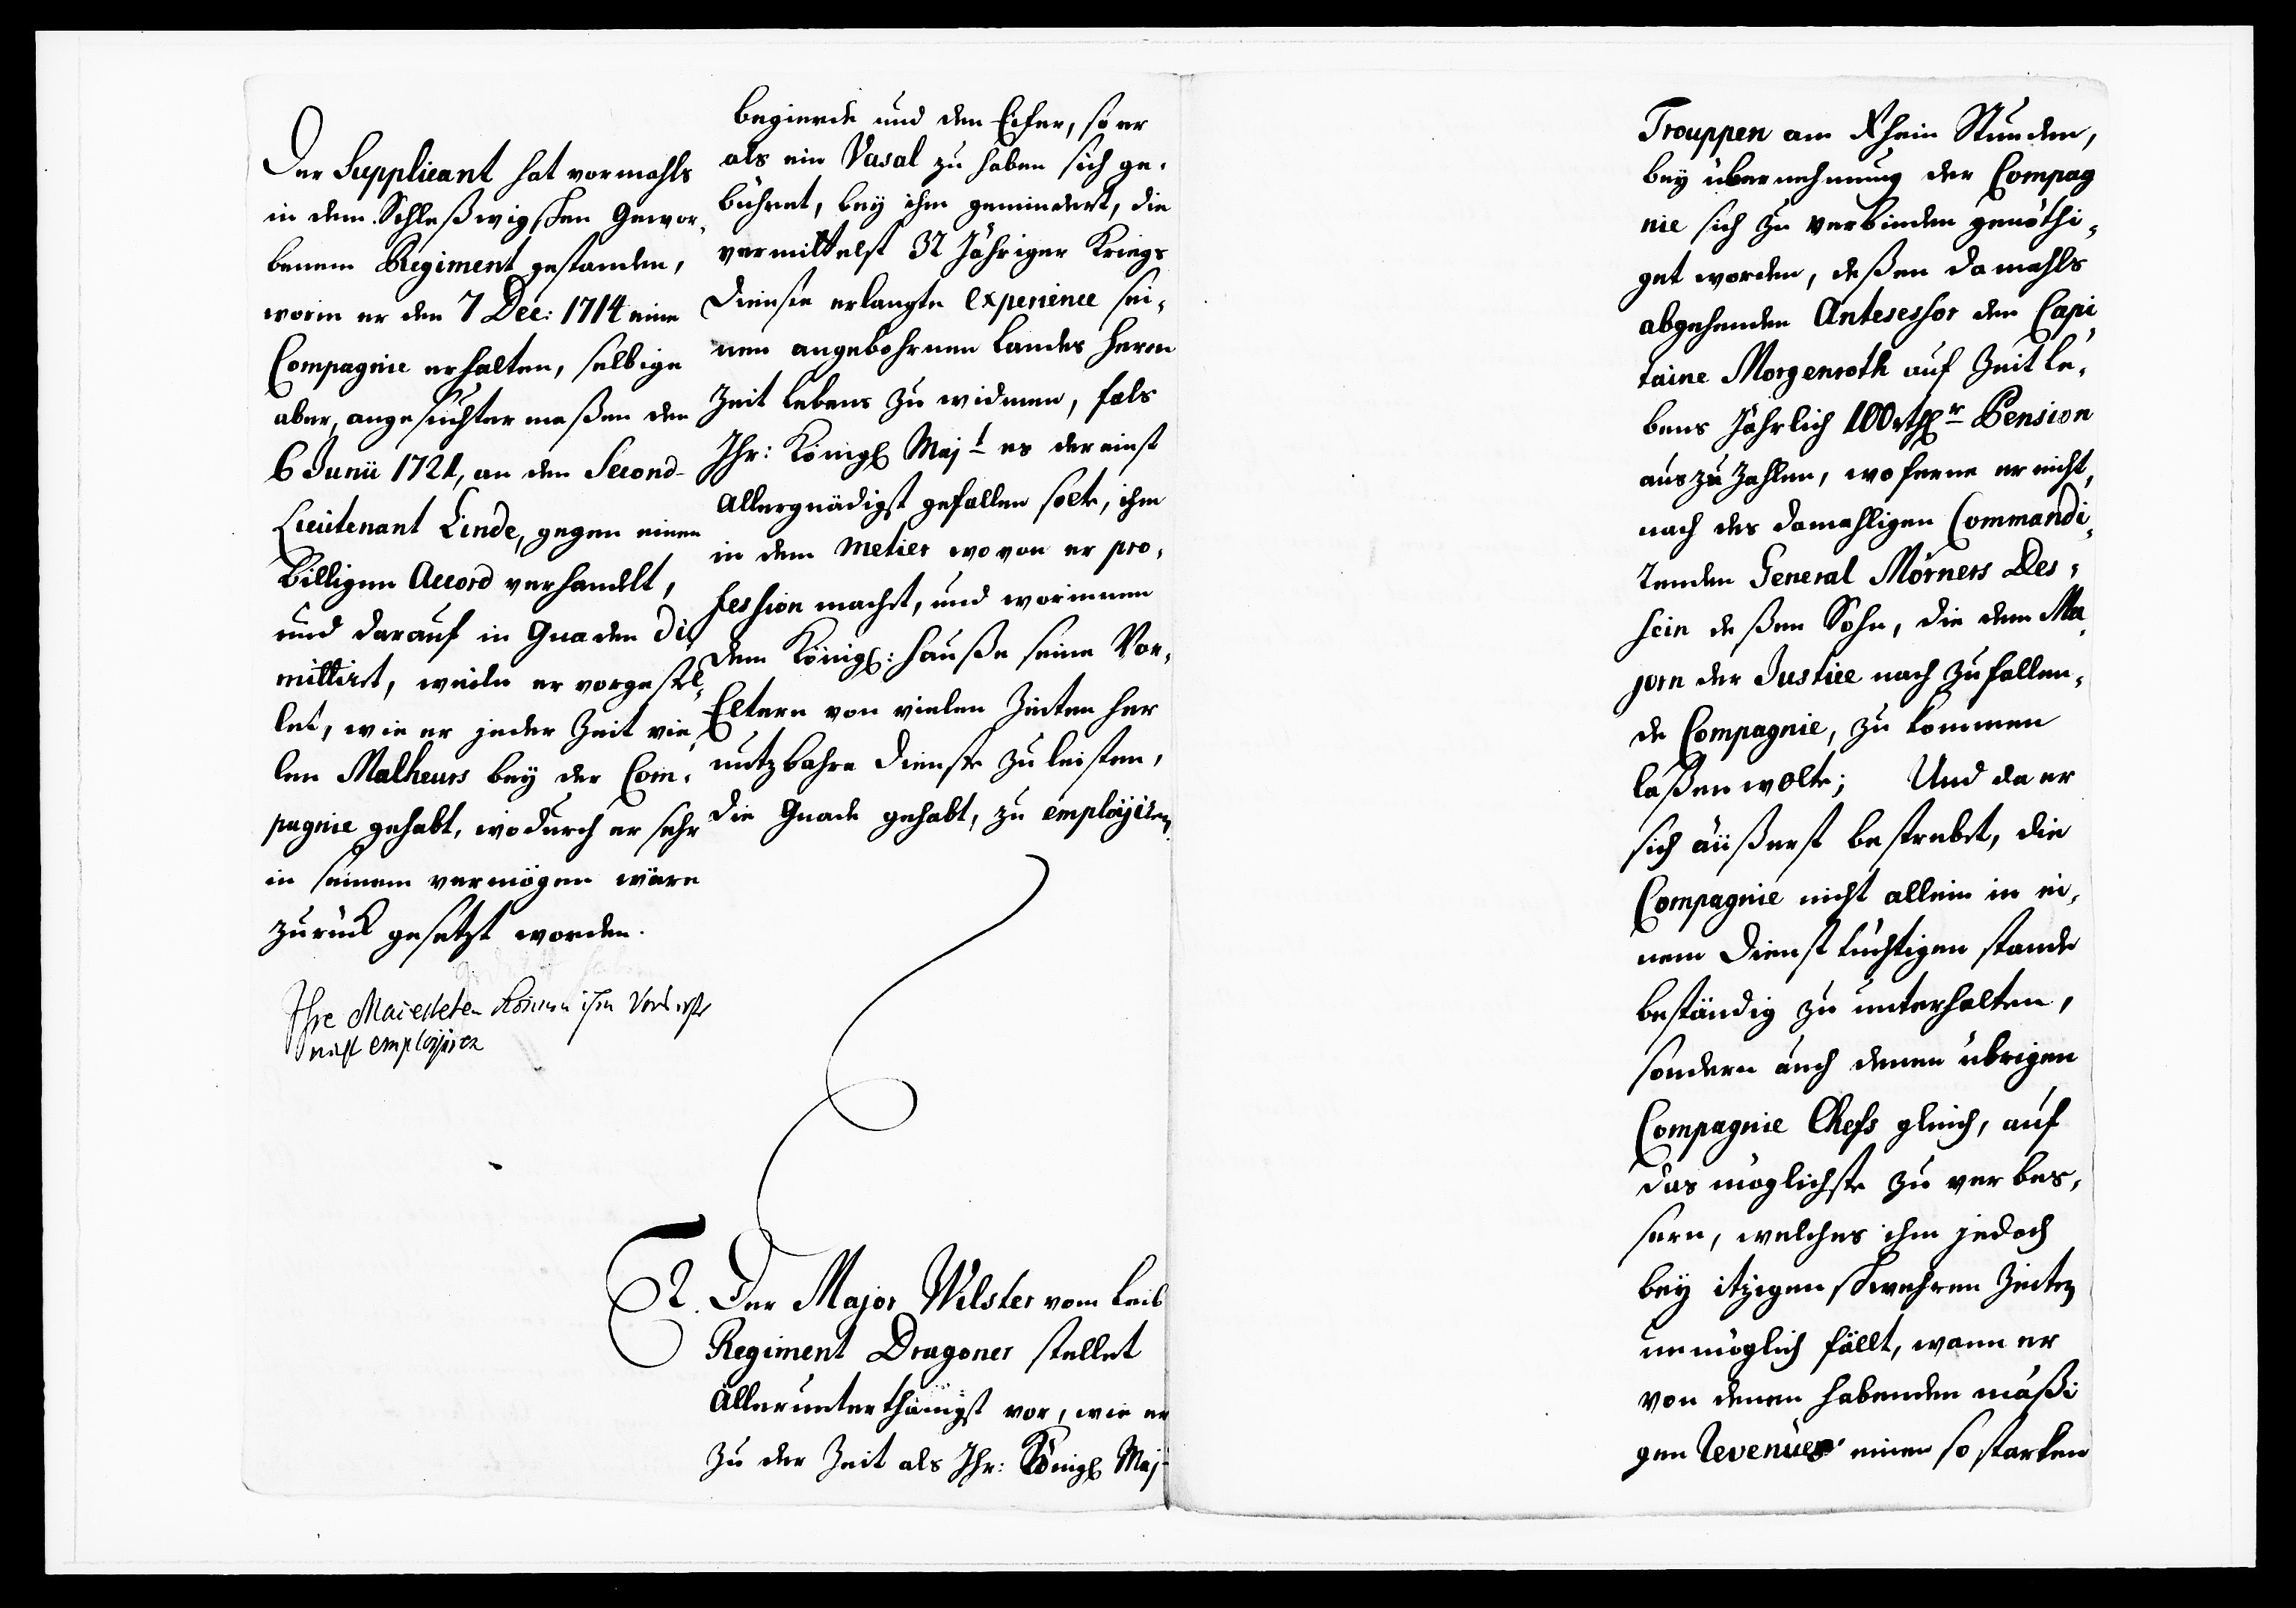 Der Supplicant hat vormahls
in dem Schleßwigschen Gewor-
benem Regiment gestanden,
worin er den 7 Dec: 1714 eine
Compagnie erhalten, selbige
aber, angesuchter maßen den
6 Junii 1721, an den Second-
Lieutenant Linde, gegen einen
billigen Accord verhandelt,
und darauf in Gnaden di-
mittirt, weile er vorgestel-
let, wie er jeder Zeit vie-
len Malheurs bey der Com-
pagnie gehabt, wodurch er sehr
in seinem vermögen wäre
zurück gesetzt worden.
Ihre Maiesteten können ihn
nicht employiren
begierde und den Eifer, so er
als ein Vasal zu haben sich ge-
bühret, bey ihm gemindert, die
vermittelst 32 Jähriger Kriegs
Dienste erlangte experience sei-
nen angebohrnen Landes Herrn
Zeit Lebens zu widmen, fals
Ihr: Königl Majt es dereinst
Allergnädigst gefallen solte, ihn
in dem metier wovon er pro-
fession macht, und worinnen
dem Königl: Hauße seine Vor-
Eltern von vielen Zeiten her
nutzbahre Dienste zu leisten,
die Gnade gehabt, zu employiren
2. Der Major Wilster vom Leib
Regiment Dragoner stellet
Allerunterthänigst vor, wie er
Zu der Zeit als Ihr: Königl Majt
Trouppen am Rhein Stunden,
bey übernehmung der Compag
nie sich zu verbinden genöthi-
get worden, deßen damahls
abgehenden Antesessor den Capi
taine Morgenroth auf Zeit le-
bens Jährlich 100 rthlr Pension
aus zu Zahlen, wo ferne er nicht,
nach des damahligen Commandi-
renden General Mörners Des-
sein deßen Sohn, die dem Ma
jorn der Justice nach zufallen-
de Compagnie, zu kommen
laßen wolte; Und da er
sich äüßerst bestrebet, die
Compagnie nicht allein in ei-
nem Dienst tüchtigen stande
beständig zu unterhalten,
sondern auch denen übrigen
Compagnie Chefs gleich, auf
das möglichste zu verbes-
sern, welches ihm jedoch
bey itzigen schwehren Zeiten
unmöglich fällt, wann er
von denen habenden mäßi
gen Revenües einen so starken